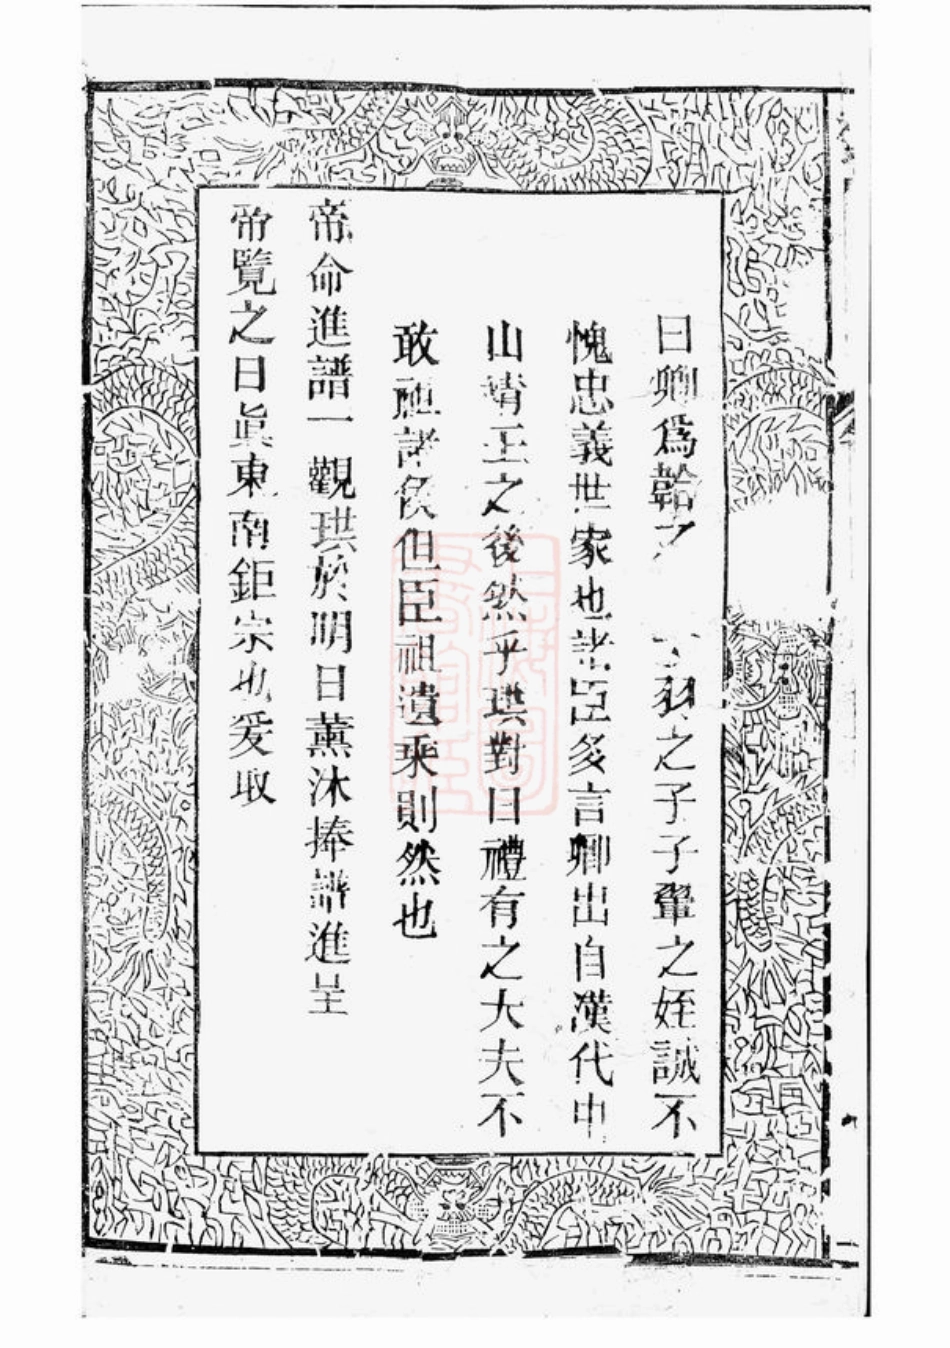 曰卿爲韐之 羽之子子翬之姪誠不
愧忠義世家也諸臣多言卿出自漢代中
山靖王之後然乎珙對曰禮有之大夫不
敢祖諸矦但臣祖遺乘則然也
帝命進譜一觀珙於明日薰沐捧譜進呈
帝覽之曰眞東南鉅宗也爰取